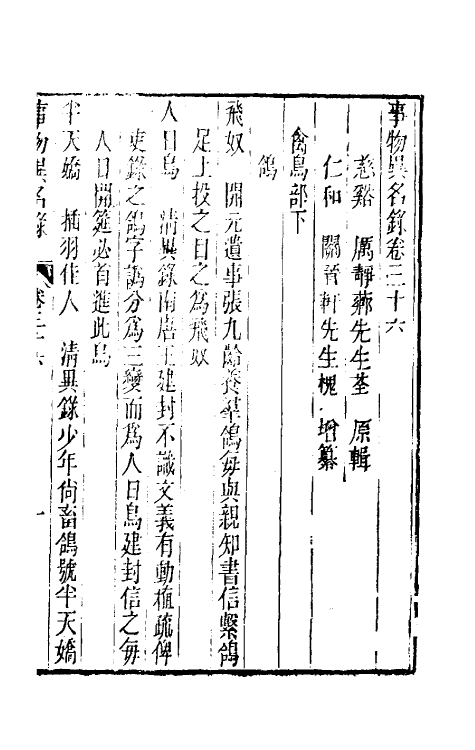 事物異名錄卷三十六
慈谿　厲靜薌先生荃　原輯
仁和　關晉軒先生槐　增纂
禽鳥部下
鴿
飛奴　開元遺事張九齡養羣鴿每與親知書信繫鴿
足上投之目之爲飛奴
人日鳥　清異錄南唐王建封不識文義有動植疏俾
吏錄之鴿字訛分爲三變而爲人日鳥建封信之每
人日開筵必首進此鳥
半天嬌　插羽佳人　清異錄少年尙畜鴿號半天嬌
事物異名錄　卷三十六　一